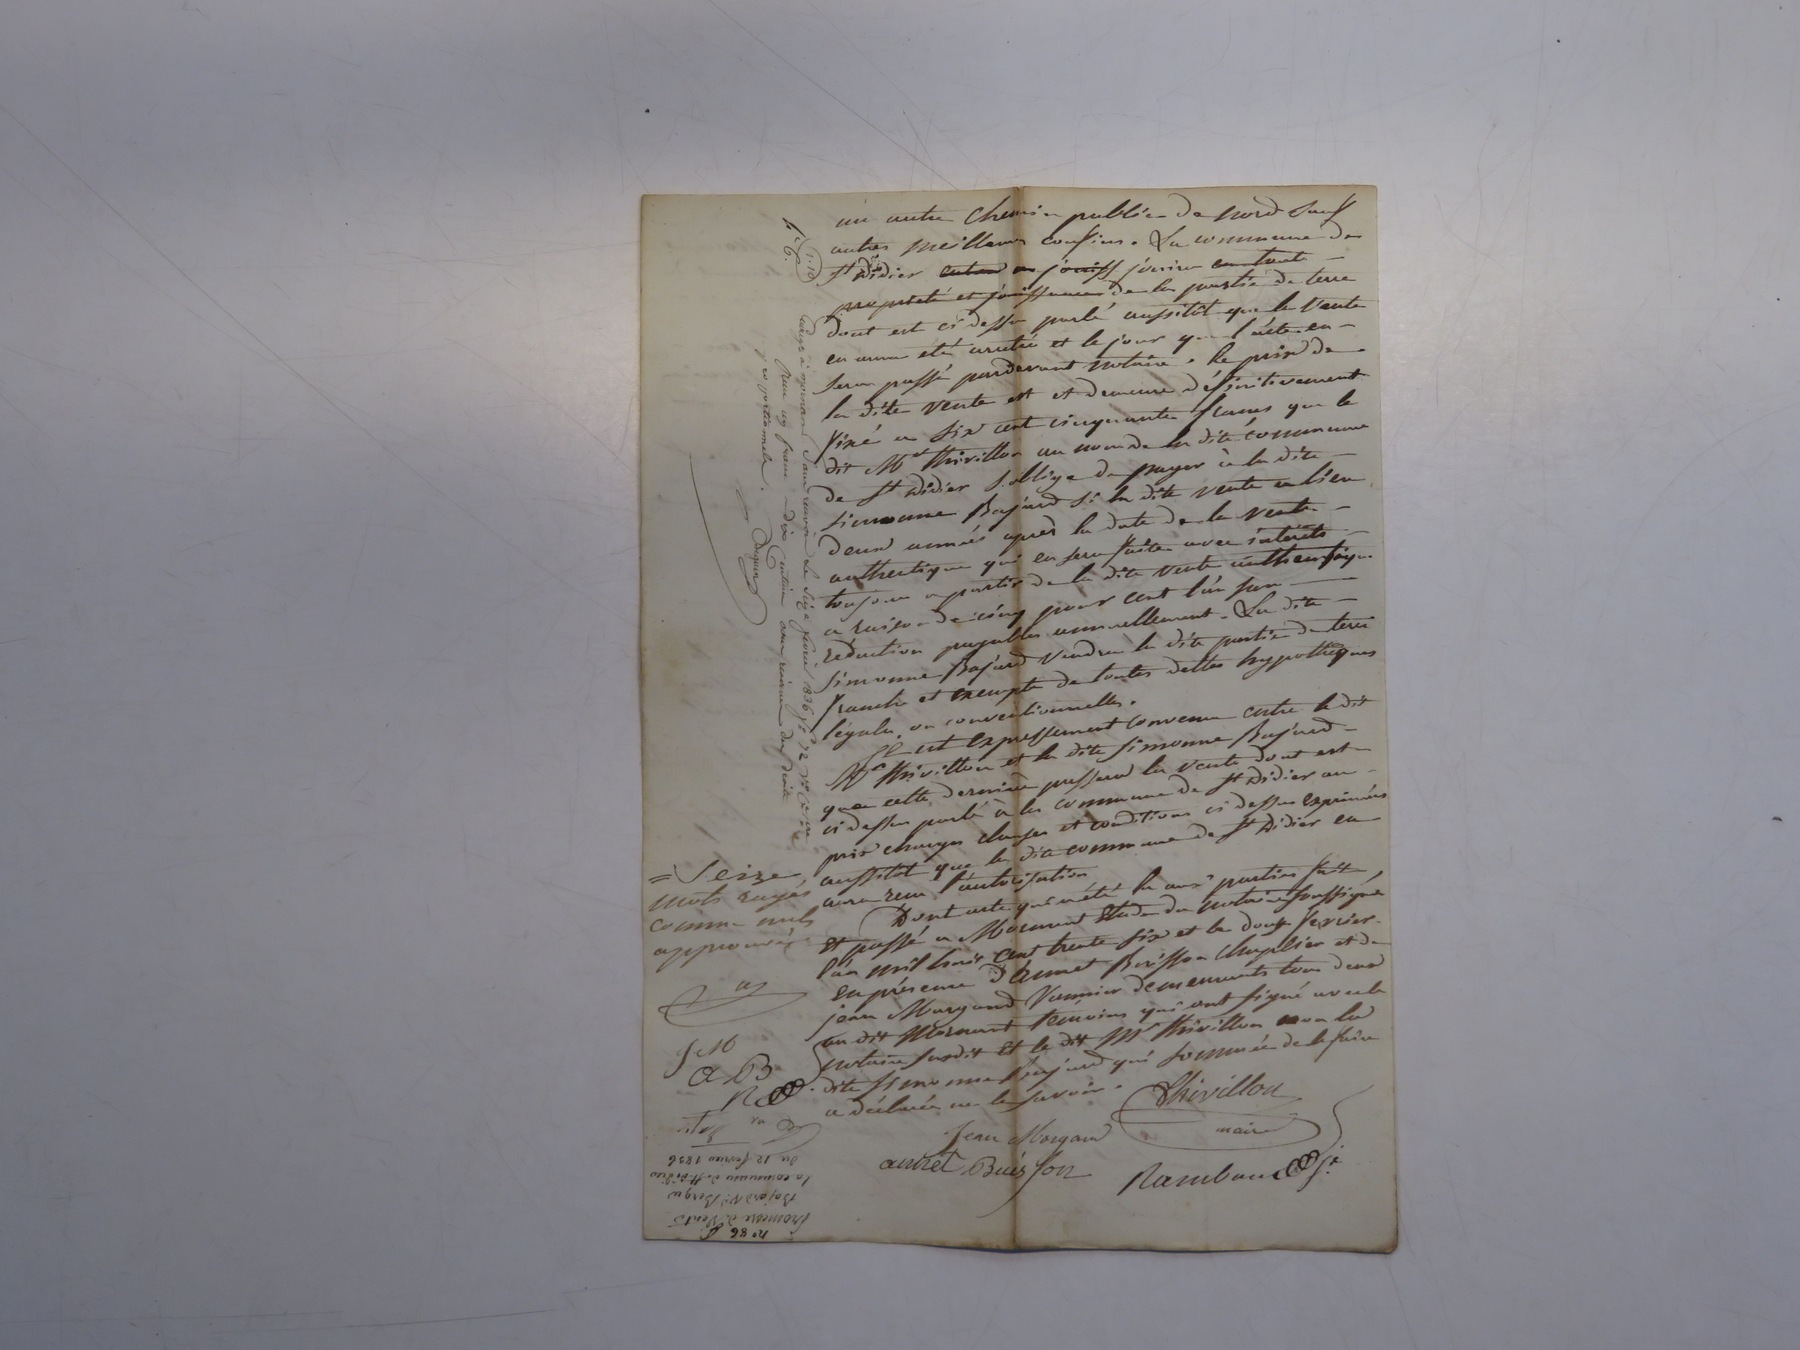 un autre chemin public de nord sauf
autres meilleurs confins. La commune de
St Didier entrera en jouiss jouira en toute
propriété et jouissance de la partie de terre
dont est ci dessus parlé aussitôt que la Vente
en aura été arrêtée et le jour que l'acte en
sera passé pardevant notaire. Le prix de
la dite vente est et demeure définitivement
fixé a six cent cinquante francs que le
dit Mr Thivillon au nom de la dite commune
de St Didier s'oblige de payer à la dite
simonne Bajard si la dite vente a lieu
deux années après la date de la vente
authentique qui en sera faite avec intérêts
toujour a partir de la dite vente authentique
a raison de cinq pour cent l'an sans
réduction payables annuellement. La dite
simonne Bajard vendra la dite partie de terre
franche et exempte de toutes dettes hypothèques
légales, ou conventionnelles.
Il est expressement convenu entre le dit
Mr Thivillon et la dite simonne Bajard
que cette dernière passera la vente dont est
ci dessus parlé à la commune de St Didier au
prix charges clauses et conditions ci dessus exprimées
aussitôt que la dite commune de St Didier en
aura reçu l'autorisation
Dont acte qu'a été la aux parties fait
et passé a Mornant Etude du notaire soussigné
l'an mil huit cent trente six et le douze fevrier
en présence d'Annet Buisson chaplier et de
jean Morgand Vannier demeurants tous deux
au dit Mornant témoins qui ont signé avec le
notaire susdit et le dit Mr Thivillon non la
dite simonne Bajard qui sommée de le faire
a déclarée ne le savoir.
Thivillon
maire
Jean Morgand
annet Buisson
Rambaud
= Seize
mots rayés
comme nuls
approuvés
J M
a B
R
f. c.
6.
1.10
Enregé à mornant sans renvoi le seize fevrier 1836 fo 72
Reçu un franc dix centimes sans réserve du droit
proportionnel.
no 86
Promesse de Vente
Bajard Ve
la commune de St Didier
du 12 fevrier 1836